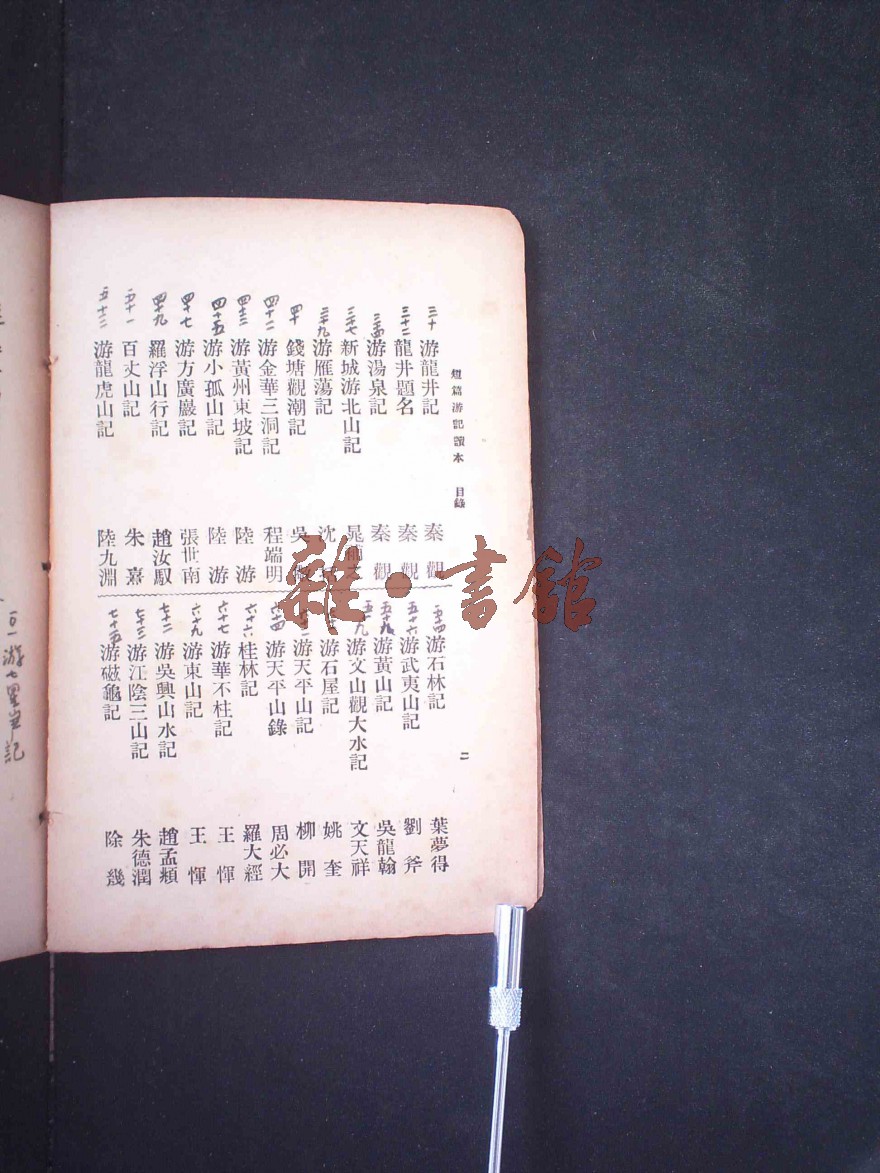 短篇游記讀本 目錄
三十 游龍井記 秦觀
三十二 龍井題名 秦觀
游湯泉記 秦觀
三十七 新城游北山記
三十九 游雁蕩記 沈
四十 錢塘觀潮記 吳
四十二 游金華三洞記 程端明
四十三 游黃州東坡記 陸游
四十五 游小孤山記 陸游
四十七 游方廣巖記 張世南
四十九 羅浮山行記 趙汝馭
百丈山記 朱熹
五十二 游龍虎山記 陸九淵
游石林記 葉夢得
五十六 游武夷山記 劉斧
游黃山記 吳龍翰
五十九 游文山觀大水記 文天祥
游石屋記 姚奎
游天平山記 柳開
游天平山錄 周必大
六十六 桂林記 羅大經
六十七 游華不柱記 王惲
六十九 游東山記 王惲
七十二 游吳興山水記 趙孟頫
七十三 游江陰三山記 朱德潤
七十五 游磁龜記 除幾
二
游七星岩記
雜·書館